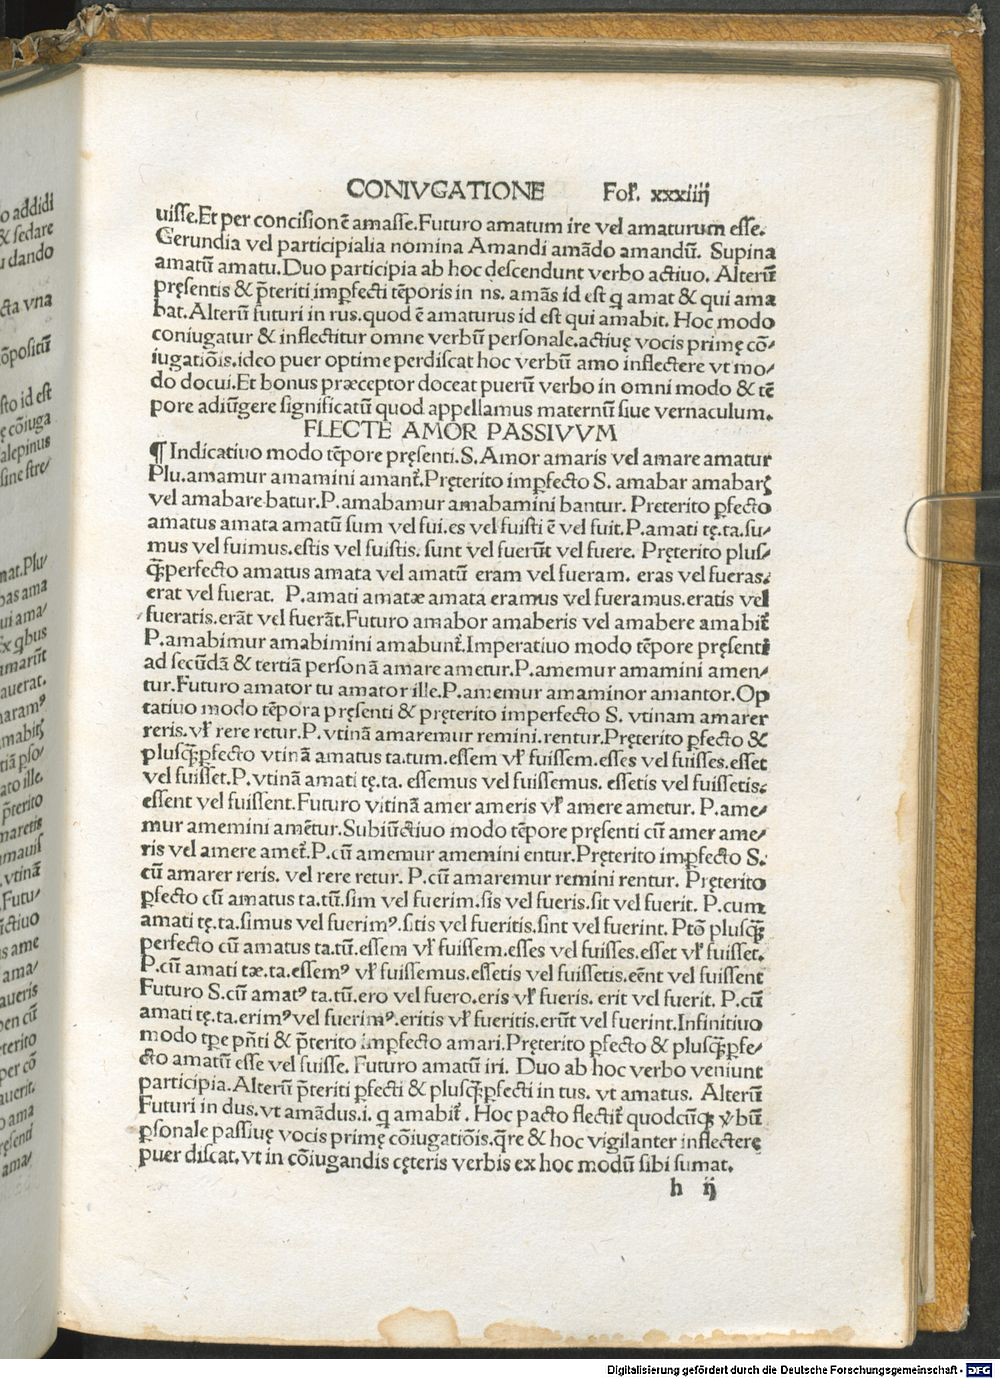 CONIVGATIONE Fol. xxxiiij
uisse.Et per concisionē amasse.Futuro amatum ire vel amaturum esse.
Gerundia vel participialia nomina Amandi amādo amandū. Supina
amatū amatu.Duo participia ab hoc descendunt verbo actiuo. Alterū
pręsentis & p̄teriti imꝑfecti tēporis in ns. amās id est q amat & qui ama
bat.Alterū futuri in rus.quod ē amaturus id est qui amabit. Hoc modo
coniugatur & inflectitur omne verbū personale.actiuę vocis primę cō/
iugatiōis.ideo puer optime perdiscat hoc verbū amo inflectere vt mo/
do docui.Et bonus præceptor doceat puerū verbo in omni modo & tē
pore adiūgere significatū quod appellamus maternū siue vernaculum.
FLECTE AMOR PASSIVVM
¶ Indicatiuo modo tēpore pręsenti.S.Amor amaris vel amare amatur
Plu.amamur amamini amant᷑.Pręterito imꝑfecto S. amabar amabarꝭ
vel amabare.batur.P.amabamur amabamini bantur. Preterito ꝑfecto
amatus amata amatū sum vel fui.es vel fuisti ē vel fuit.P.amati tę.ta.su/
mus vel fuimus.estis vel fuistis. sunt vel fuerūt vel fuere. Pręterito plus/
q̄ꝫperfecto amatus amata vel amatū eram vel fueram. eras vel fueras.
erat vel fuerat. P.amati amatæ amata eramus vel fueramus.eratis vel
fueratis.erāt vel fuerāt.Futuro amabor amaberis vel amabere amabit᷑
P.amabimur amabimini amabunt᷑.Imperatiuo modo tēpore pręsenti
ad secūdā & tertiā personā amare ametur.P.amemur amamini amen/
tur.Futuro amator tu amator ille.P.amemur amaminor amantor.Op
tatiuo modo tēpora pręsenti & pręterito imperfecto S. vtinam amarer
reris.vł rere retur.P.vtinā amaremur remini.rentur.Pręterito ꝑfecto &
plusq̄ꝫꝑfecto vtinā amatus ta.tum.essem vł fuissem.esses vel fuisses.esset
vel fuisset.P.vtinā amati tę.ta. essemus vel fuissemus. essetis vel fuissetis.
essent vel fuissent.Futuro vitinā amer ameris vł amere ametur. P.ame/
mur amemini amētur.Subiūctiuo modo tēpore pręsenti cū amer ame/
ris vel amere amet᷑.P.cū amemur amemini entur.Pręterito imꝑfecto S.
cū amarer reris. vel rere retur. P.cū amaremur remini rentur. Pręterito
ꝑfecto cū amatus ta.tū.sim vel fuerim.sis vel fueris.sit vel fuerit. P.cum
amati tę.ta.simus vel fuerimꝰ.sitis vel fueritis.sint vel fuerint. Ptō plusq̄ꝫ
perfecto cū amatus ta.tū.essem vł fuissem.esses vel fuisses.esset vł fuisset.
P.cū amati tæ.ta.essemꝰ vł fuissemus.essetis vel fuissetis.eēnt vel fuissent
Futuro S.cū amatꝰ ta.tū.ero vel fuero.eris vł fueris. erit vel fuerit. P.cū
amati tę.ta.erimꝰ vel fuerimꝰ.eritis vł fueritis.erūt vel fuerint.Infinitiuo
modo tp̄e pn̄ti & p̄terito imꝑfecto amari.Pręterito ꝑfecto & plusq̄ꝫꝑfe/
cto amatū esse vel fuisse. Futuro amatū iri. Duo ab hoc verbo veniunt
participia.Alterū p̄teriti ꝑfecti & plusq̄ꝫꝑfecti in tus. vt amatus. Alterū
Futuri in dus.vt amādus.i. q amabit᷑. Hoc pacto flectit᷑ quodcūqꝫ v̄bū
ꝑsonale passiuę vocis primę cōiugatiōis.q̄re & hoc vigilanter inflectere
puer discat.vt in cōiugandis cęteris verbis ex hoc modū sibi sumat.
h ij
o addidi
& sedare
u dando
cta vna
ōpositū
sto id est
ę cōiuga
alepinus
sine stre/
mat.Plu/
bas ama
ui ama/
Ex qbus
marūt
auerat.
tiā ꝑso/
ato ille.
p̄terito
maretis
.vtinā
.Futu/
ūctiuo
s ame
ama/
aueris
terito
per cō
auerit.
o ama
ręsenti
ama/
Digitalisierung gefördert durch die Deutsche Forschungsgemeinschaft - DFG